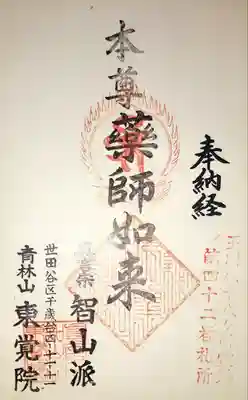 奉納経
本尊
薬師如来
真言宗
智山派
世田谷区千歳台四-十一-十一
青林山
東覚院